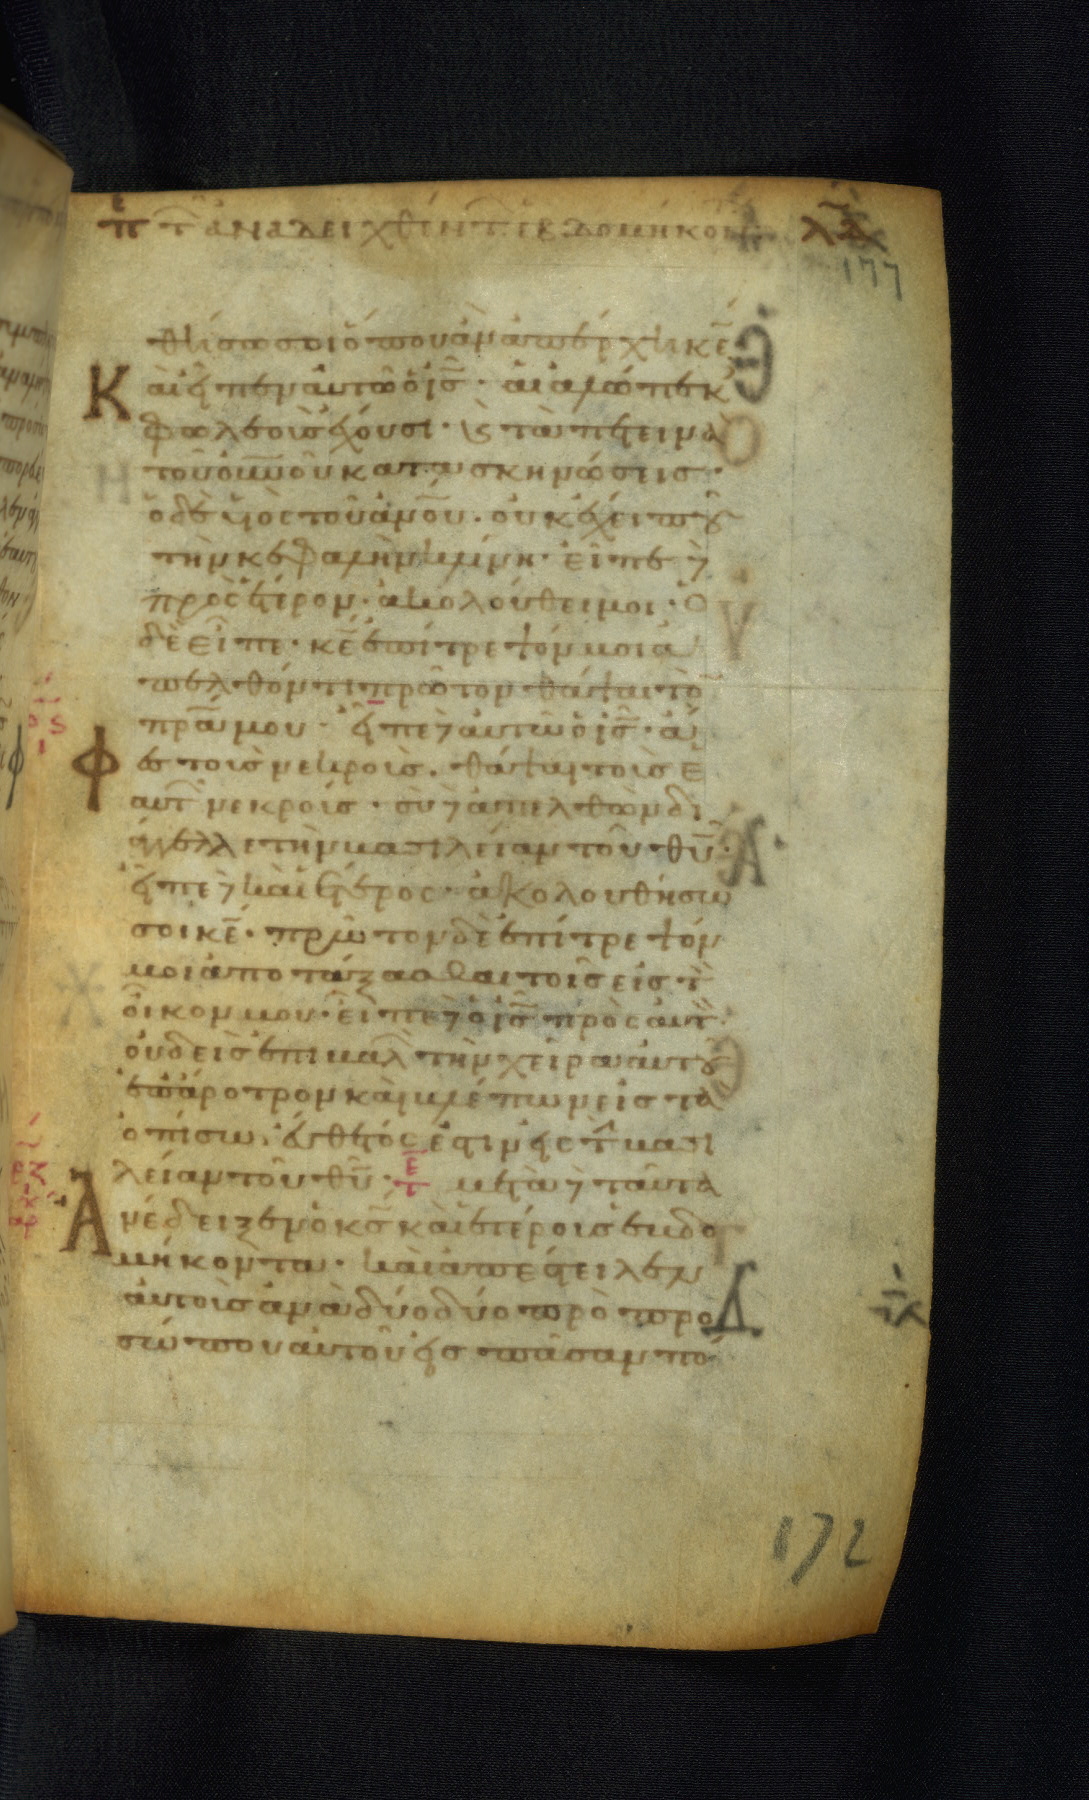 πε τ ἀναδειχθέντ ἑβδομήκοντ λδ
177
θήσω σοι ὅπου ἂν ἀπέρχη κε
Καὶ εἶπεν αὐτῶ ὁ ις · αἱ ἀλώπεκ
φωλεοὺς ἔχουσι · κ τὰ πετεινὰ
τοῦ οὐνοῦ κατασκηνώσεις ·
ὁ δὲ υἱὸς τοῦ ἀνου · οὐκ ἔχει ποῦ
τὴν κεφαλὴν κλίνη · εἶπε δὲ
πρὸς ἕτερον · ἀκολούθει μοι · ὁ
δὲ εἶπε · κε ἐπίτρεψόν μοι ἀ
πελθόντι πρῶτον θάψαι τὸ
πρα μου · εἶπε δὲ αὐτῶ ὁ ις · ἄ
Φες τοὺς νεκροὺς · θάψαι τοὺς ἑ
αυτ νεκρούς · σὺ δὲ ἀπελθὼν δι
άγγελλε τὴν βασιλείαν τοῦ θυ ·
εἶπε δὲ καὶ ἕτερος · ἀκολουθήσω
σοι κε · πρῶτον δὲ ἐπίτρεψόν
μοι ἀποτάξασθαι τοῖς εἰς τ
οἶκον μου · εἶπε δὲ ὁ ις πρὸς αὐτ ·
οὐδεὶς ἐπιβαλ τὴν χεῖρα αὐτοῦ
ἐπ ἄροτρον καὶ βλέπων εἰς τὰ
ὀπίσω · εὔθετός ἐστιν εἰς τ βασι
λείαν τοῦ θυ · τε μετὰ δὲ ταῦτα
Ἀνέδειξεν ὁ κς καὶ ἑτέροις ἑβδο
μήκοντα · καὶ ἀπέστειλεν
αὐτοὺς ἀνὰ δύο δύο πρὸ προ
σώπου αὐτοῦ εἰς πᾶσαν πό
172